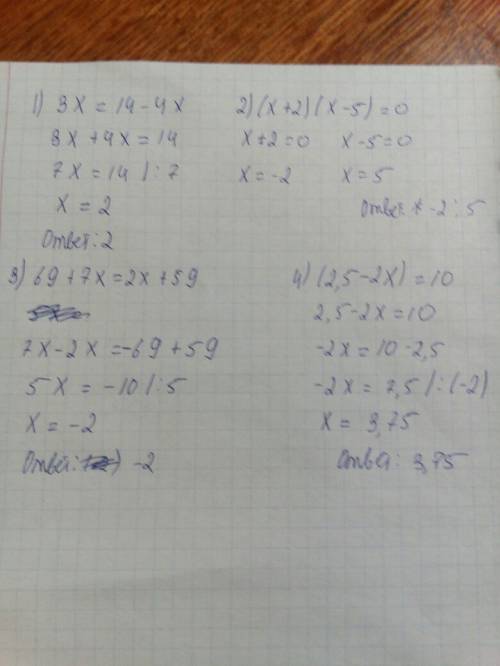 1) 3x = 14 - 4x
3x + 4x = 14
7x = 14 |: 7
x = 2
Ответ: 2
2) (x+2) (x-5) = 0
x+2=0 x-5=0
x=-2 x=5
Ответ: -2; 5
3) 69+7x=2x+59
7x-2x=-69+59
5x = -10 |: 5
x = -2
Ответ: -2
4) (2,5-2x) = 10
2,5-2x=10
-2x=10-2,5
-2x= 7,5 |: (-2)
x = 3,75
Ответ: 3,75